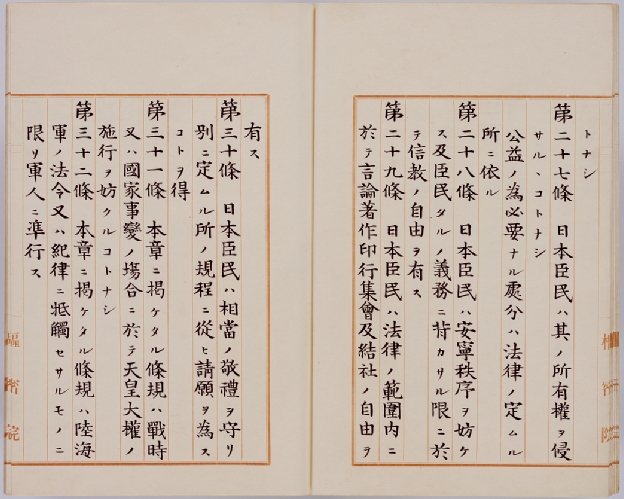 トナシ
第二十七條 日本臣民ハ其ノ所有權ヲ侵
サルヽコトナシ
公益ノ為必要ナル處分ハ法律ノ定ムル
所ニ依ル
第二十八條 日本臣民ハ安寧秩序ヲ妨ケ
ス及臣民タルノ義務ニ背カサル限ニ於
テ信教ノ自由ヲ有ス
第二十九條 日本臣民ハ法律ノ範圍内ニ
於テ言論著作印行集會及結社ノ自由ヲ
有ス
第三十條 日本臣民ハ相當ノ敬禮ヲ守リ
別ニ定ムル所ノ規程ニ從ヒ請願ヲ為ス
コトヲ得
第三十一條 本章ニ掲ケタル條規ハ戰時
又ハ國家事變ノ場合ニ於テ天皇大權ノ
施行ヲ妨クルコトナシ
第三十二條 本章ニ掲ケタル條規ハ陸海
軍ノ法令又ハ紀律ニ牴觸セサルモノニ
限リ軍人ニ準行ス
樞密院